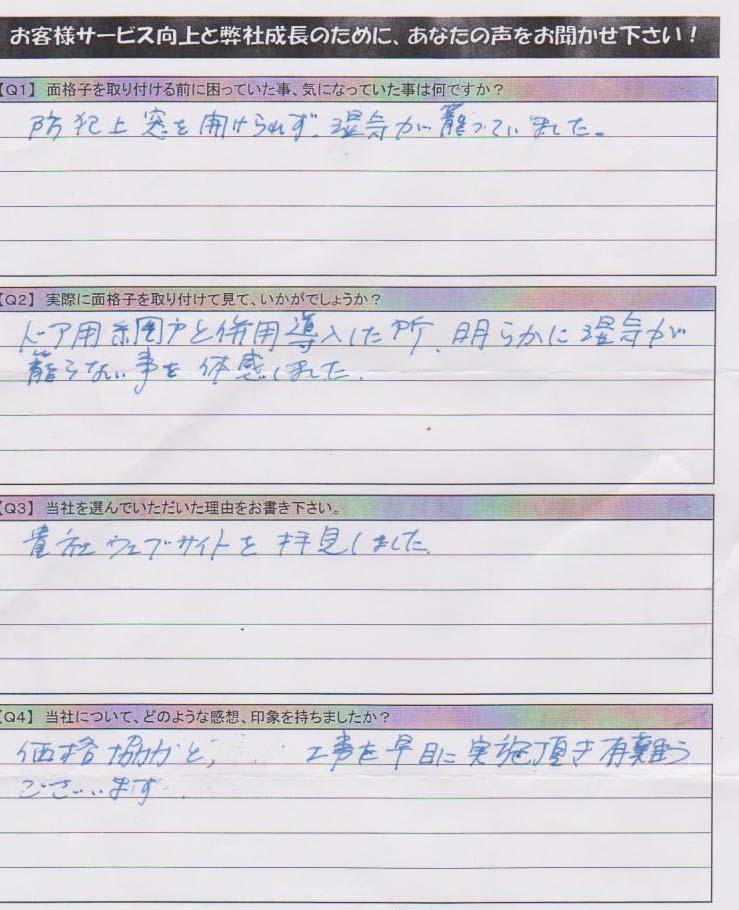 お客様サービス向上と弊社成長のために、あなたの声をお聞かせ下さい！
【Q1】 面格子を取り付ける前に困っていた事、気になっていた事は何ですか？
防犯上窓を開けられず、湿気が籠っていました。
【Q2】 実際に面格子を取り付けて見て、いかがでしょうか？
ドア用網戸と併用導入した所、明らかに湿気が
籠らない事を体感しました.
【Q3】 当社を選んでいただいた理由をお書き下さい。
貴社ウェブサイトを拝見しました.
【Q4】 当社について、どのような感想、印象を持ちましたか？
価格協力と, 工事を早目に実施頂き有難う
ございます.